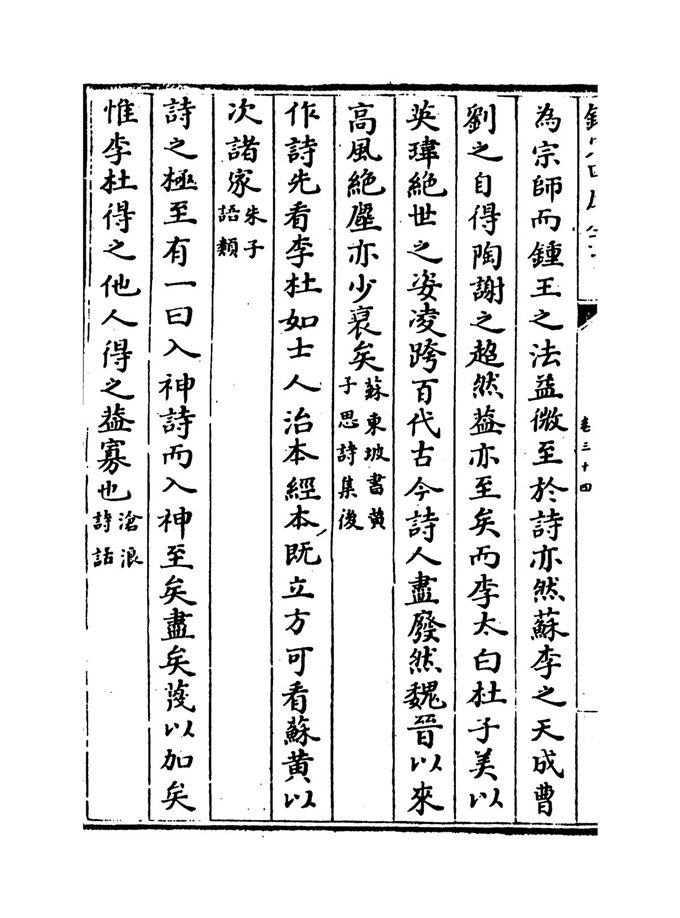 卷三十四
為宗師而鍾王之法益微至於詩亦然蘇李之天成曹
劉之自得陶謝之超然葢亦至矣而李太白杜子美以
英瑋絶世之姿凌跨百代古今詩人盡廢然魏晉以來
高風絶塵亦少衰矣蘇東坡書黄子思詩集後
作詩先看李杜如士人治本經本既立方可看蘇黄以
次諸家朱子語類
詩之極至有一曰入神詩而入神至矣盡矣蔑以加矣
惟李杜得之他人得之葢寡也滄浪詩話